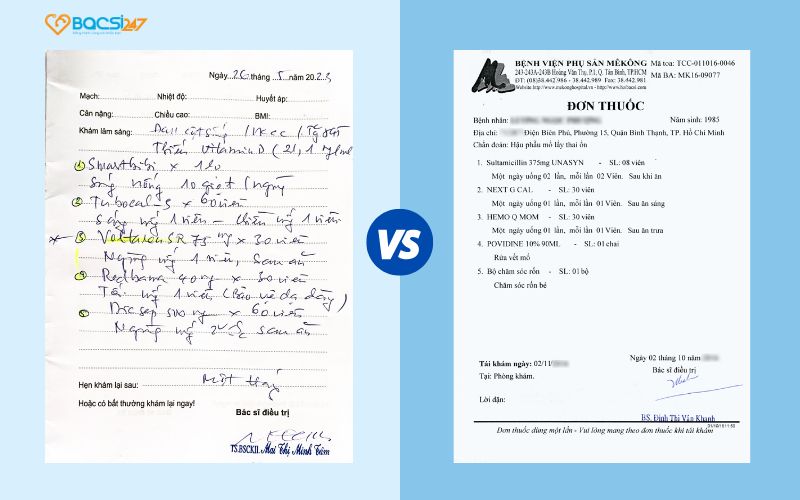 BACSI247
Ngày 26 tháng 5 năm 2023
Mạch: Nhiệt độ: Huyết áp:
Cân nặng: Chiều cao: BMI:
Khám lâm sàng: Đau cột sống
Thiếu Vitamin D (21,1
1 Smartbibi x 1 lọ
Sáng uống 10 giọt / ngày
2 Tubocal-S x 60 viên
Sáng uống 1 viên - chiều uống 1 viên
3 Voltaren SR 75 mg x 30 viên
Ngày uống 1 viên, sau ăn
4 Redbama 40 mg x 30 viên
Tối uống 1 viên (bảo vệ dạ dày)
5 500 mg x 60 viên
Ngày uống sau ăn
Hẹn khám lại sau: Một tháng
Hoặc có bất thường khám lại ngay!
Bác sĩ điều trị
TS.BSCKII. Mai Thị Minh Tâm
VS
BỆNH VIỆN PHỤ SẢN MÊKÔNG Mã toa: TCC-011016-0046
243-243A-243B Hoàng Văn Thụ, P.1, Q. Tân Bình, TP.HCM
Mã BA: MK16-09077
ĐT: (08)38.442.986 - 38.442.989, Fax: 38.442.981
Website http://www.mekonghospital.vn - http://www.tuvbacsi.com
ĐƠN THUỐC
Bệnh nhân: Năm sinh: 1985
Địa chỉ: Điện Biên Phủ, Phường 15, Quận Bình Thạnh, TP. Hồ Chí Minh
Chẩn đoán: Hậu phẫu mổ lấy thai ổn
1. Sultamicillin 375mg UNASYN - SL: 08 viên
Một ngày uống 02 lần, mỗi lần 02 Viên. Sau khi ăn
2. NEXT G CAL - SL: 30 viên
Một ngày uống 01 lần, mỗi lần 01 Viên. Sau ăn sáng
3. HEMO Q MOM - SL: 30 viên
Một ngày uống 01 lần, mỗi lần 01 Viên. Sau ăn trưa
4. POVIDINE 10% 90ML - SL: 01 chai
Rửa vết mổ
5. Bộ chăm sóc rốn - SL: 01 bộ
Chăm sóc rốn bé
Tái khám ngày: 02/11/
Tại: Phòng khám.
Ngày 02 tháng 10 năm
Bác sĩ điều trị
Lời dặn:
BS. Đinh Thị Vân Khanh
Đơn thuốc dùng một lần - Vui lòng mang theo đơn thuốc khi tái khám